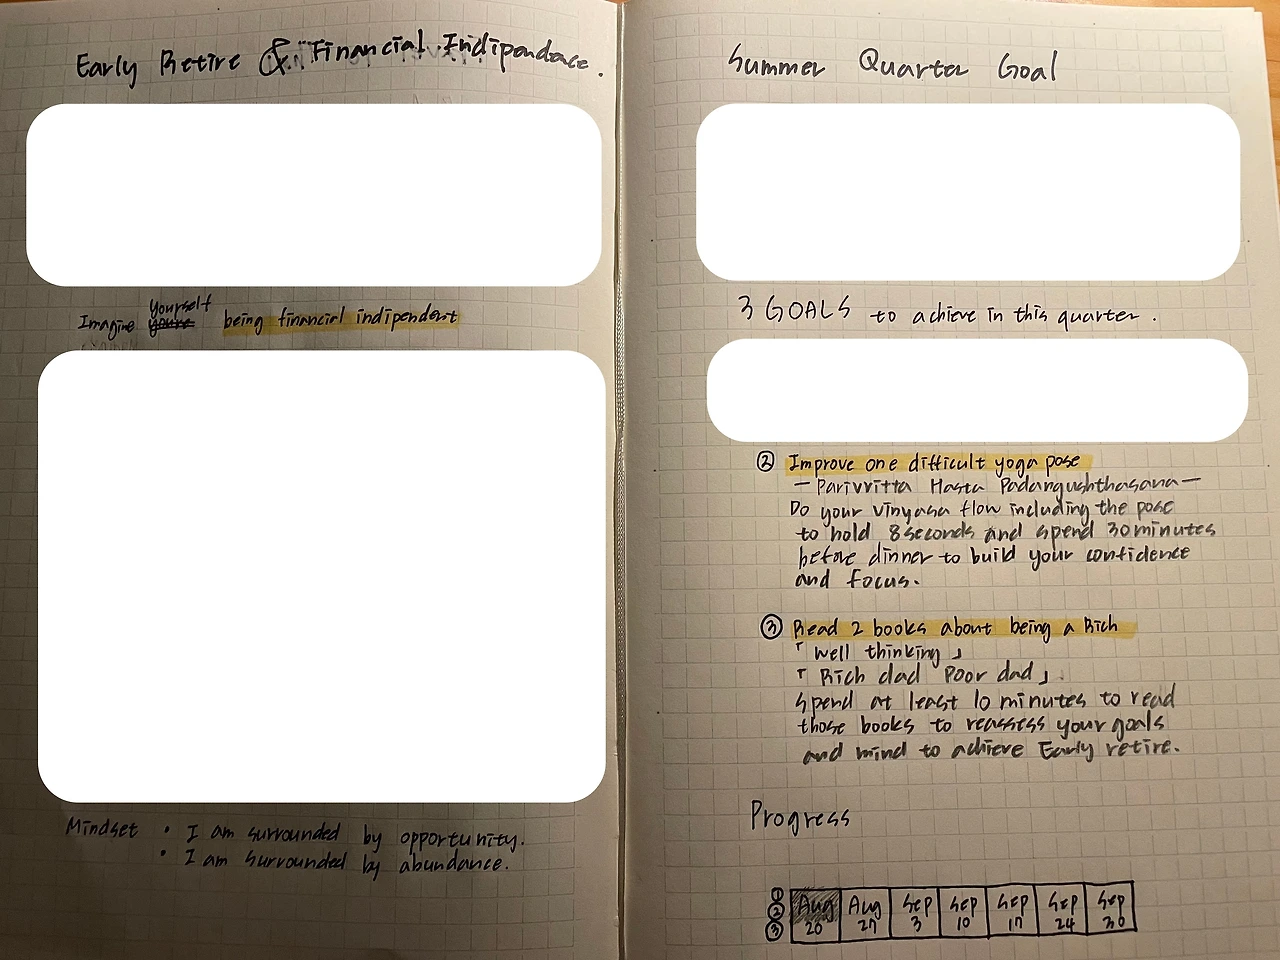 Early Retire & Financial Indipendence.
Imagine yourself being financial indipendent
Mindset • I am surrounded by opportunity.
• I am surrounded by abundance.
Summer Quarter Goal
3 GOALS to achieve in this quarter.
② Improve one difficult yoga pose
— Parivritta Hasta Padangushthasana —
Do your vinyasa flow including the pose
to hold 8 seconds and spend 30 minutes
before dinner to build your confidence
and focus.
③ Read 2 books about being a Rich
「Well thinking」
「Rich dad Poor dad」.
Spend at least 10 minutes to read
those books to reassess your goals
and mind to achieve Early retire.
Progress
① ② ③
Aug 20 Aug 27 Sep 3 Sep 10 Sep 17 Sep 24 Sep 30